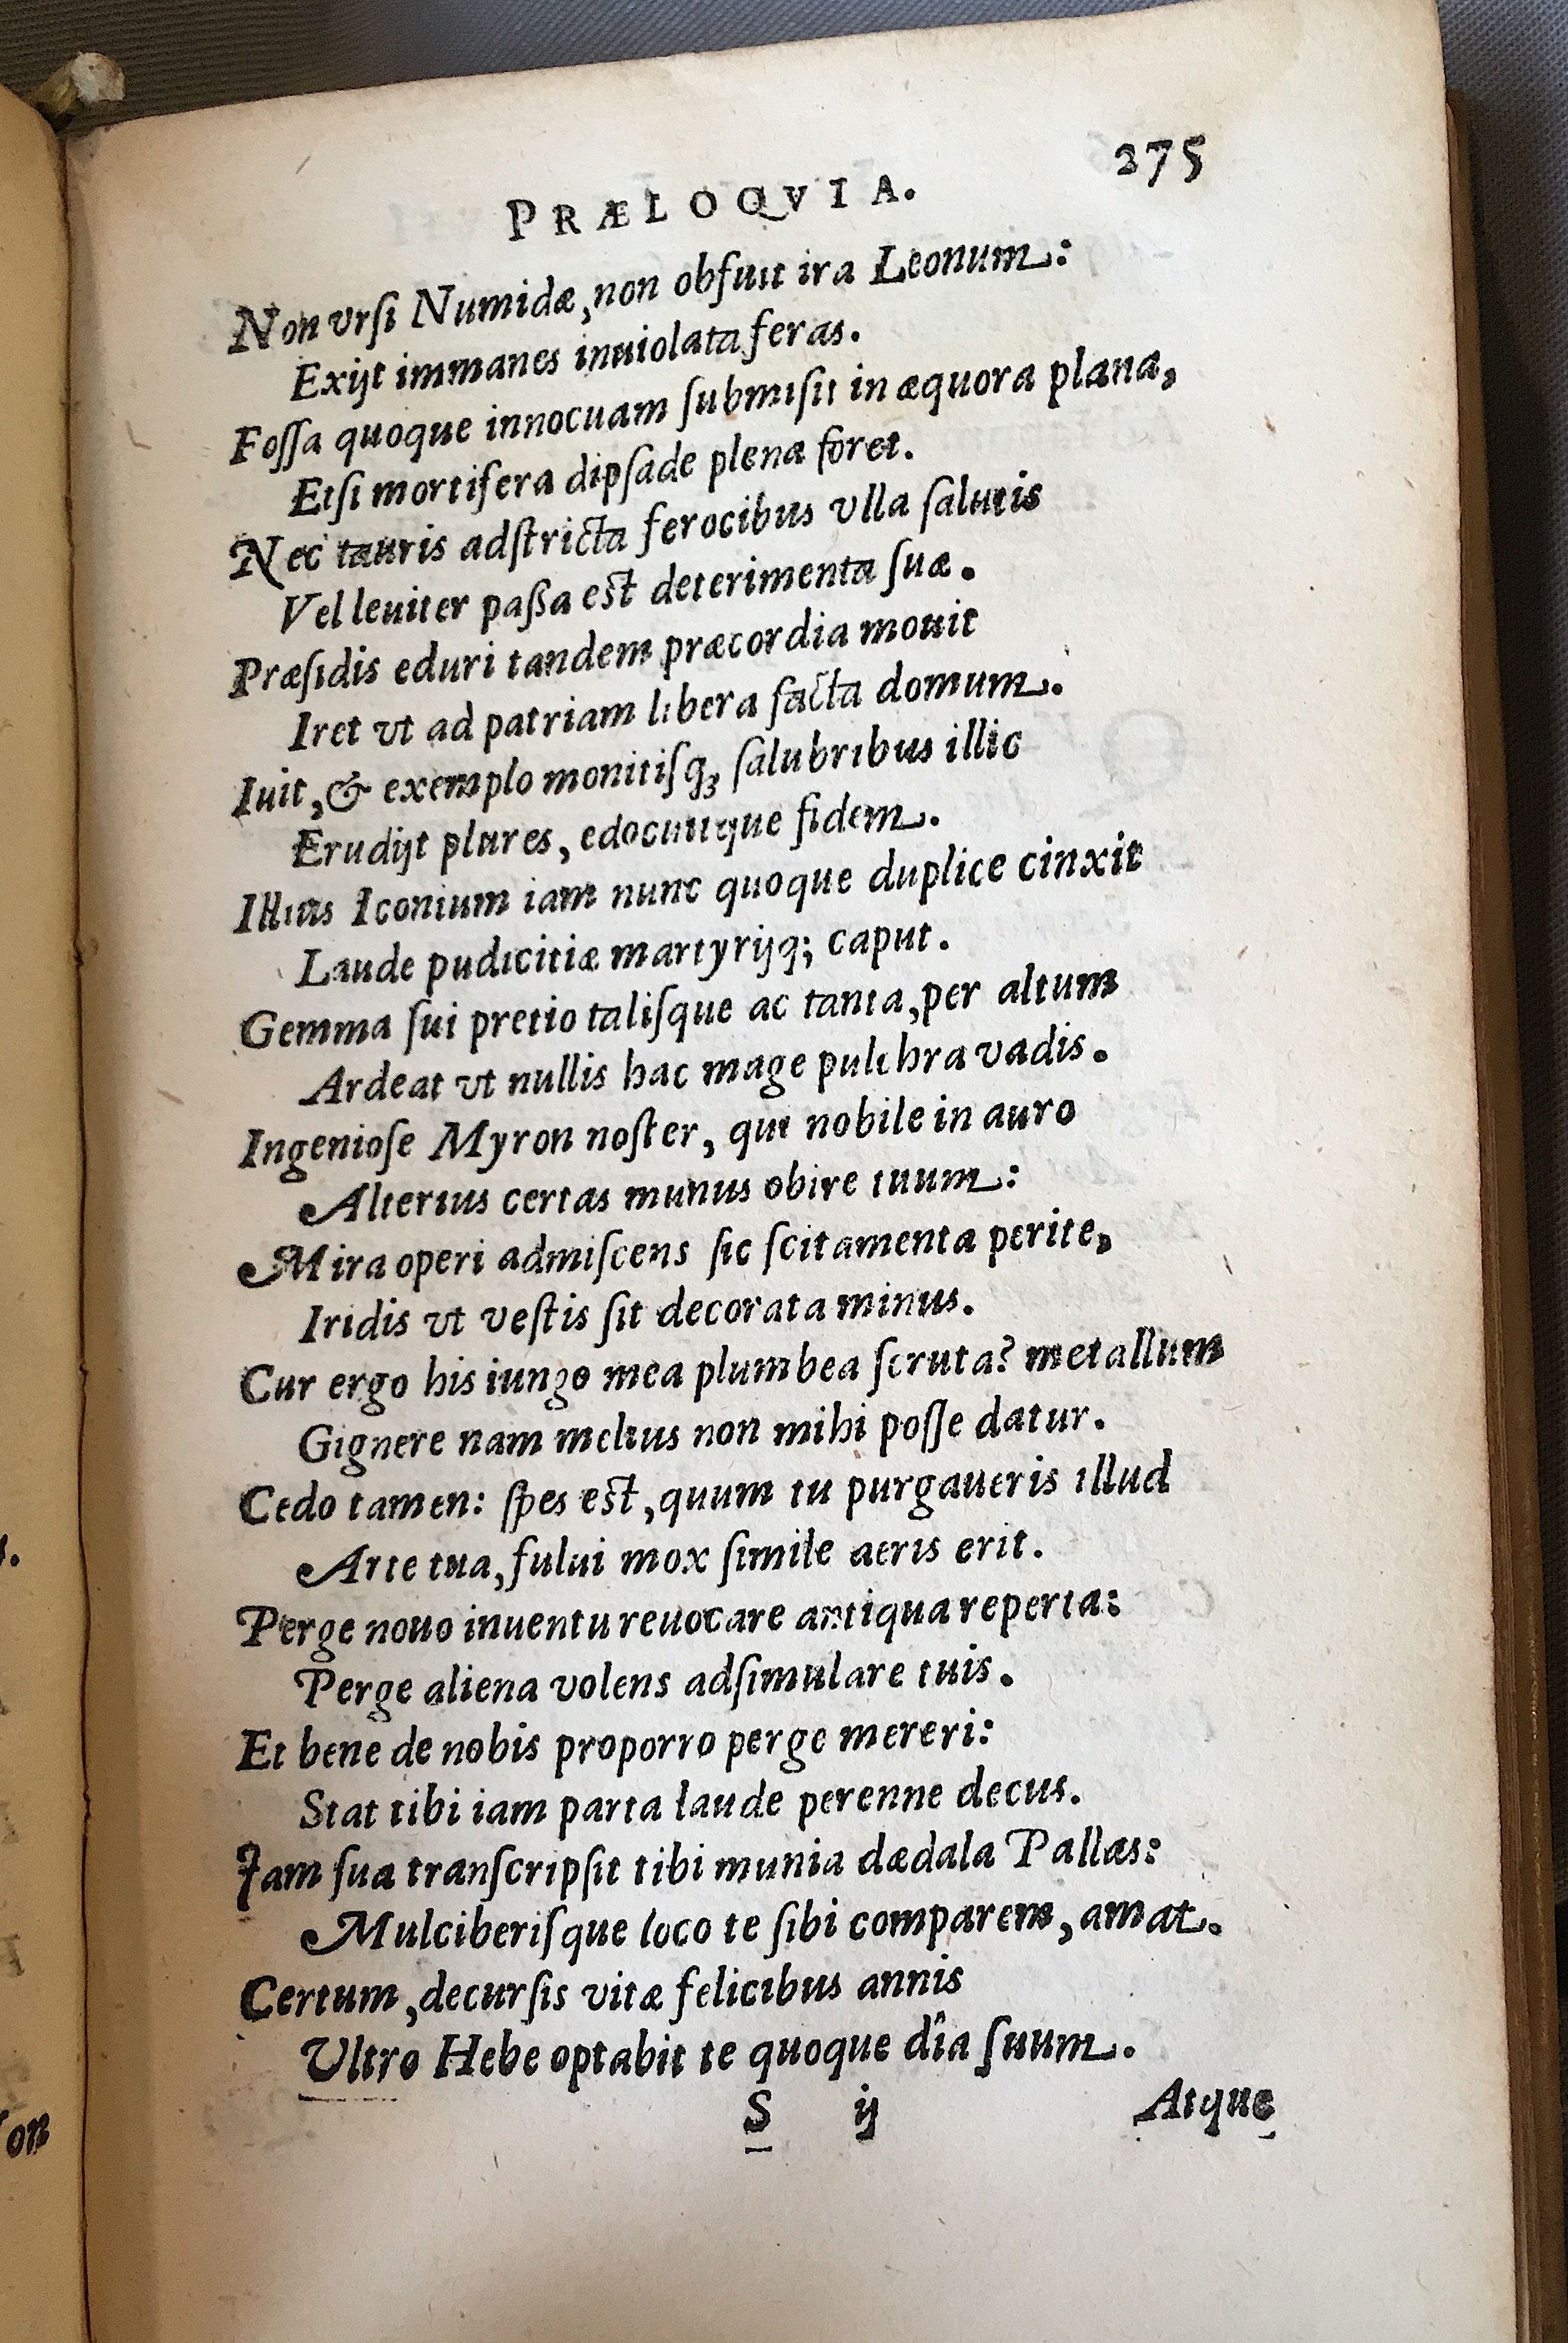 275
PRÆLOQVIA.
Non vrſi Numidæ, non obfuit ira Leonum:
Exijt immanes inuiolata feras.
Foſſa quoque innocuam ſubmiſit in æquora plana,
Etſi mortifera dipſade plena foret.
Nec tauris adſtricta ferocibus vlla ſalutis
Vel leuiter paßa eſt deterimenta ſuæ.
Præſidis eduri tandem præcordia mouit
Iret vt ad patriam libera facta domum.
Iuit, & exemplo monitiſq; ſalubribus illic
Erudijt plures, edocuitque fidem.
Illius Iconium iam nunc quoque duplice cinxit
Laude pudicitiæ martyrijq; caput.
Gemma ſui pretio taliſque ac tanta, per altum
Ardeat vt nullis hac mage pulchra vadis.
Ingenioſe Myron noſter, qui nobile in auro
Alterius certas munus obire tuum:
Mira operi admiſcens ſic ſcitamenta perite,
Iridis vt veſtis ſit decorata minus.
Cur ergo his iungo mea plumbea ſcruta? metallum
Gignere nam melius non mihi poſſe datur.
Cedo tamen: ſpes eſt, quum tu purgaueris illud
Arte tua, fului mox ſimile aeris erit.
Perge nouo inuentu reuocare antiqua reperta:
Perge aliena volens adſimulare tuis.
Et bene de nobis proporro perge mereri:
Stat tibi iam parta laude perenne decus.
Jam ſua tranſcripſit tibi munia dædala Pallas:
Mulciberiſque loco te ſibi comparem, amat.
Certum, decurſis vitæ felicibus annis
Vltro Hebe optabit te quoque dîa ſuum.
S ij
Atque
on